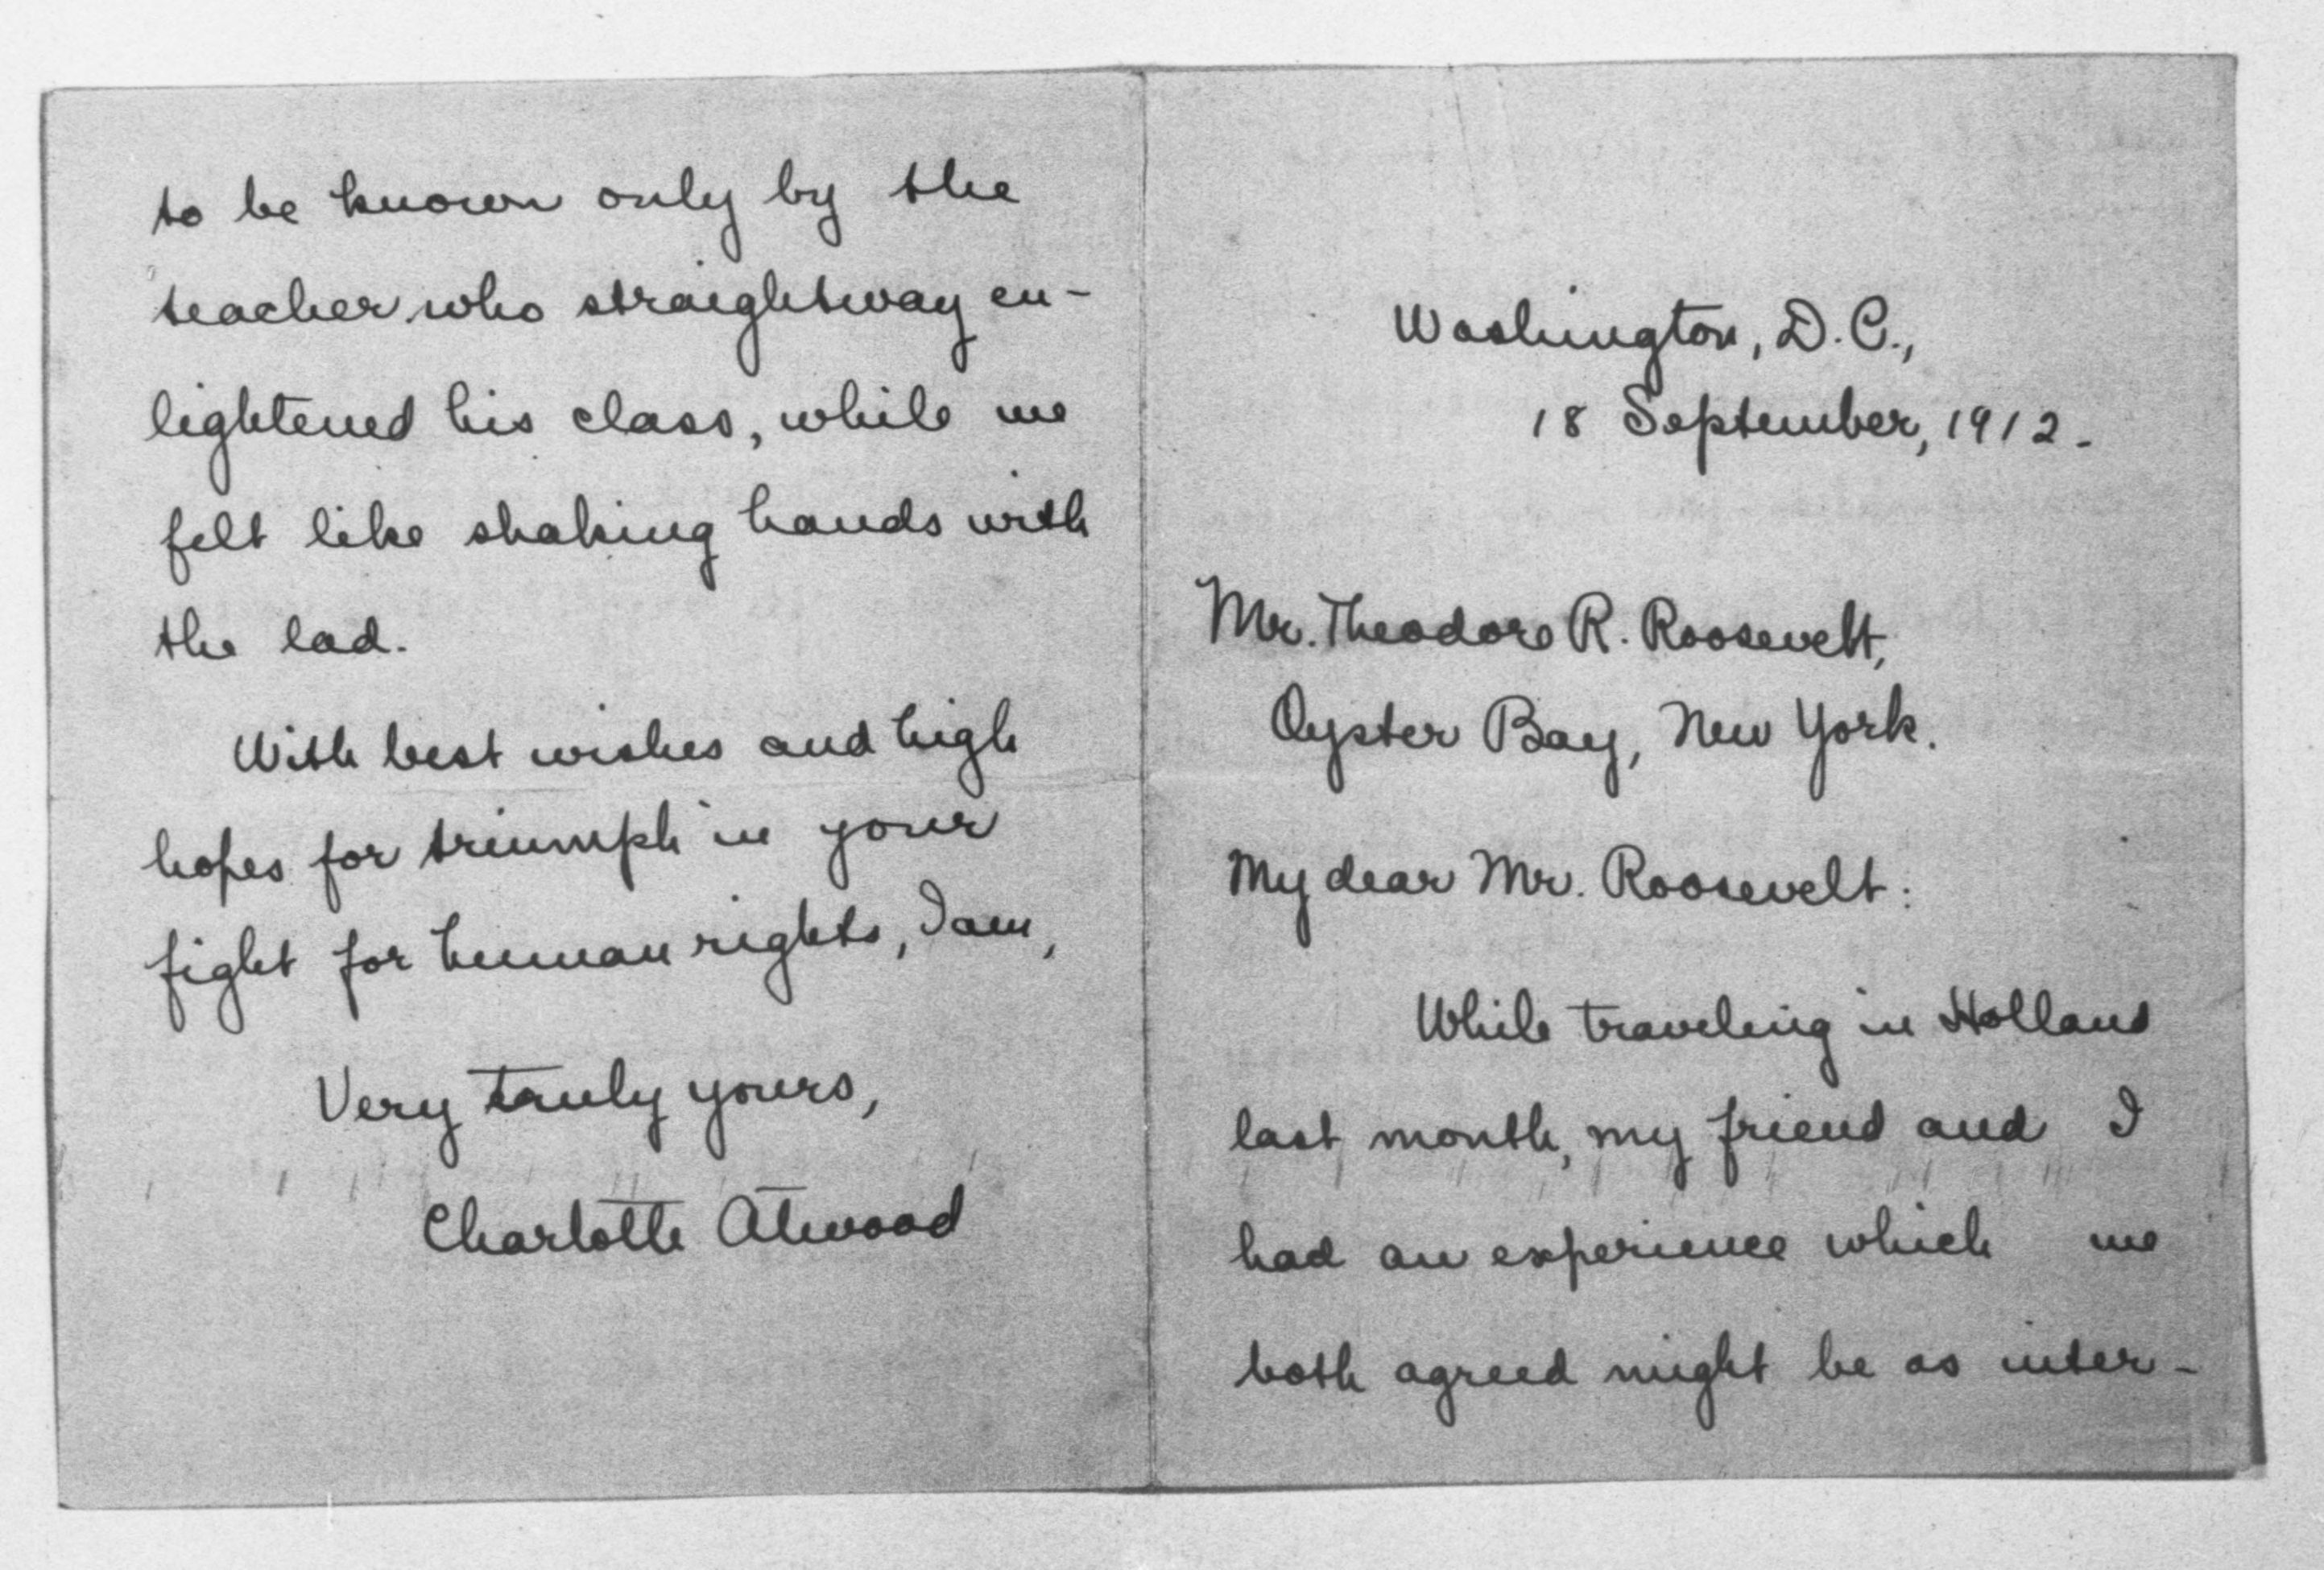 to be known only by the
teacher who straightway en-
lightened his class, while we
felt like shaking hands with
the lad.
With best wishes and high
hopes for triumph in your
fight for human rights, I am,
Very truly yours,
Charlotte Atwood
Washington, D.C.,
18 September, 1912.
Mr. Theodore R. Roosevelt,
Oyster Bay, New York.
My dear Mr. Roosevelt:
While traveling in Holland
last month, my friend and I
had an experience which we
both agreed might be as inter-